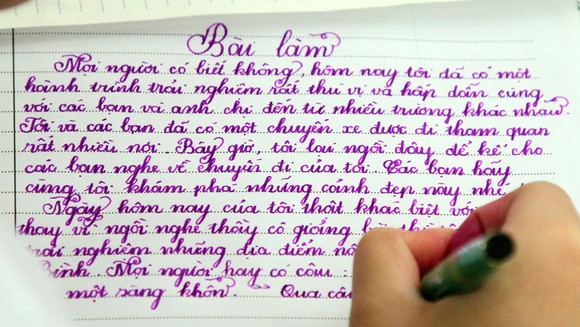 Bài làm
Mọi người có biết không, hôm nay tôi đã có một
hành trình trải nghiệm rất thú vị và hấp dẫn cùng
với các bạn và anh chị đến từ nhiều trường khác nhau.
Tôi và các bạn đã có một chuyến xe được đi tham quan
rất nhiều nơi. Bây giờ, tôi lại ngồi đây để kể cho
các bạn nghe về chuyến đi của tôi. Các bạn hãy
cùng tôi khám phá những cảnh đẹp này
Ngày hôm nay của tôi thật khác biệt
thay vì ngồi nghe thầy cô giảng
trải nghiệm những địa điểm
Bình. Mọi người hay có câu:
một sàng khôn. Qua